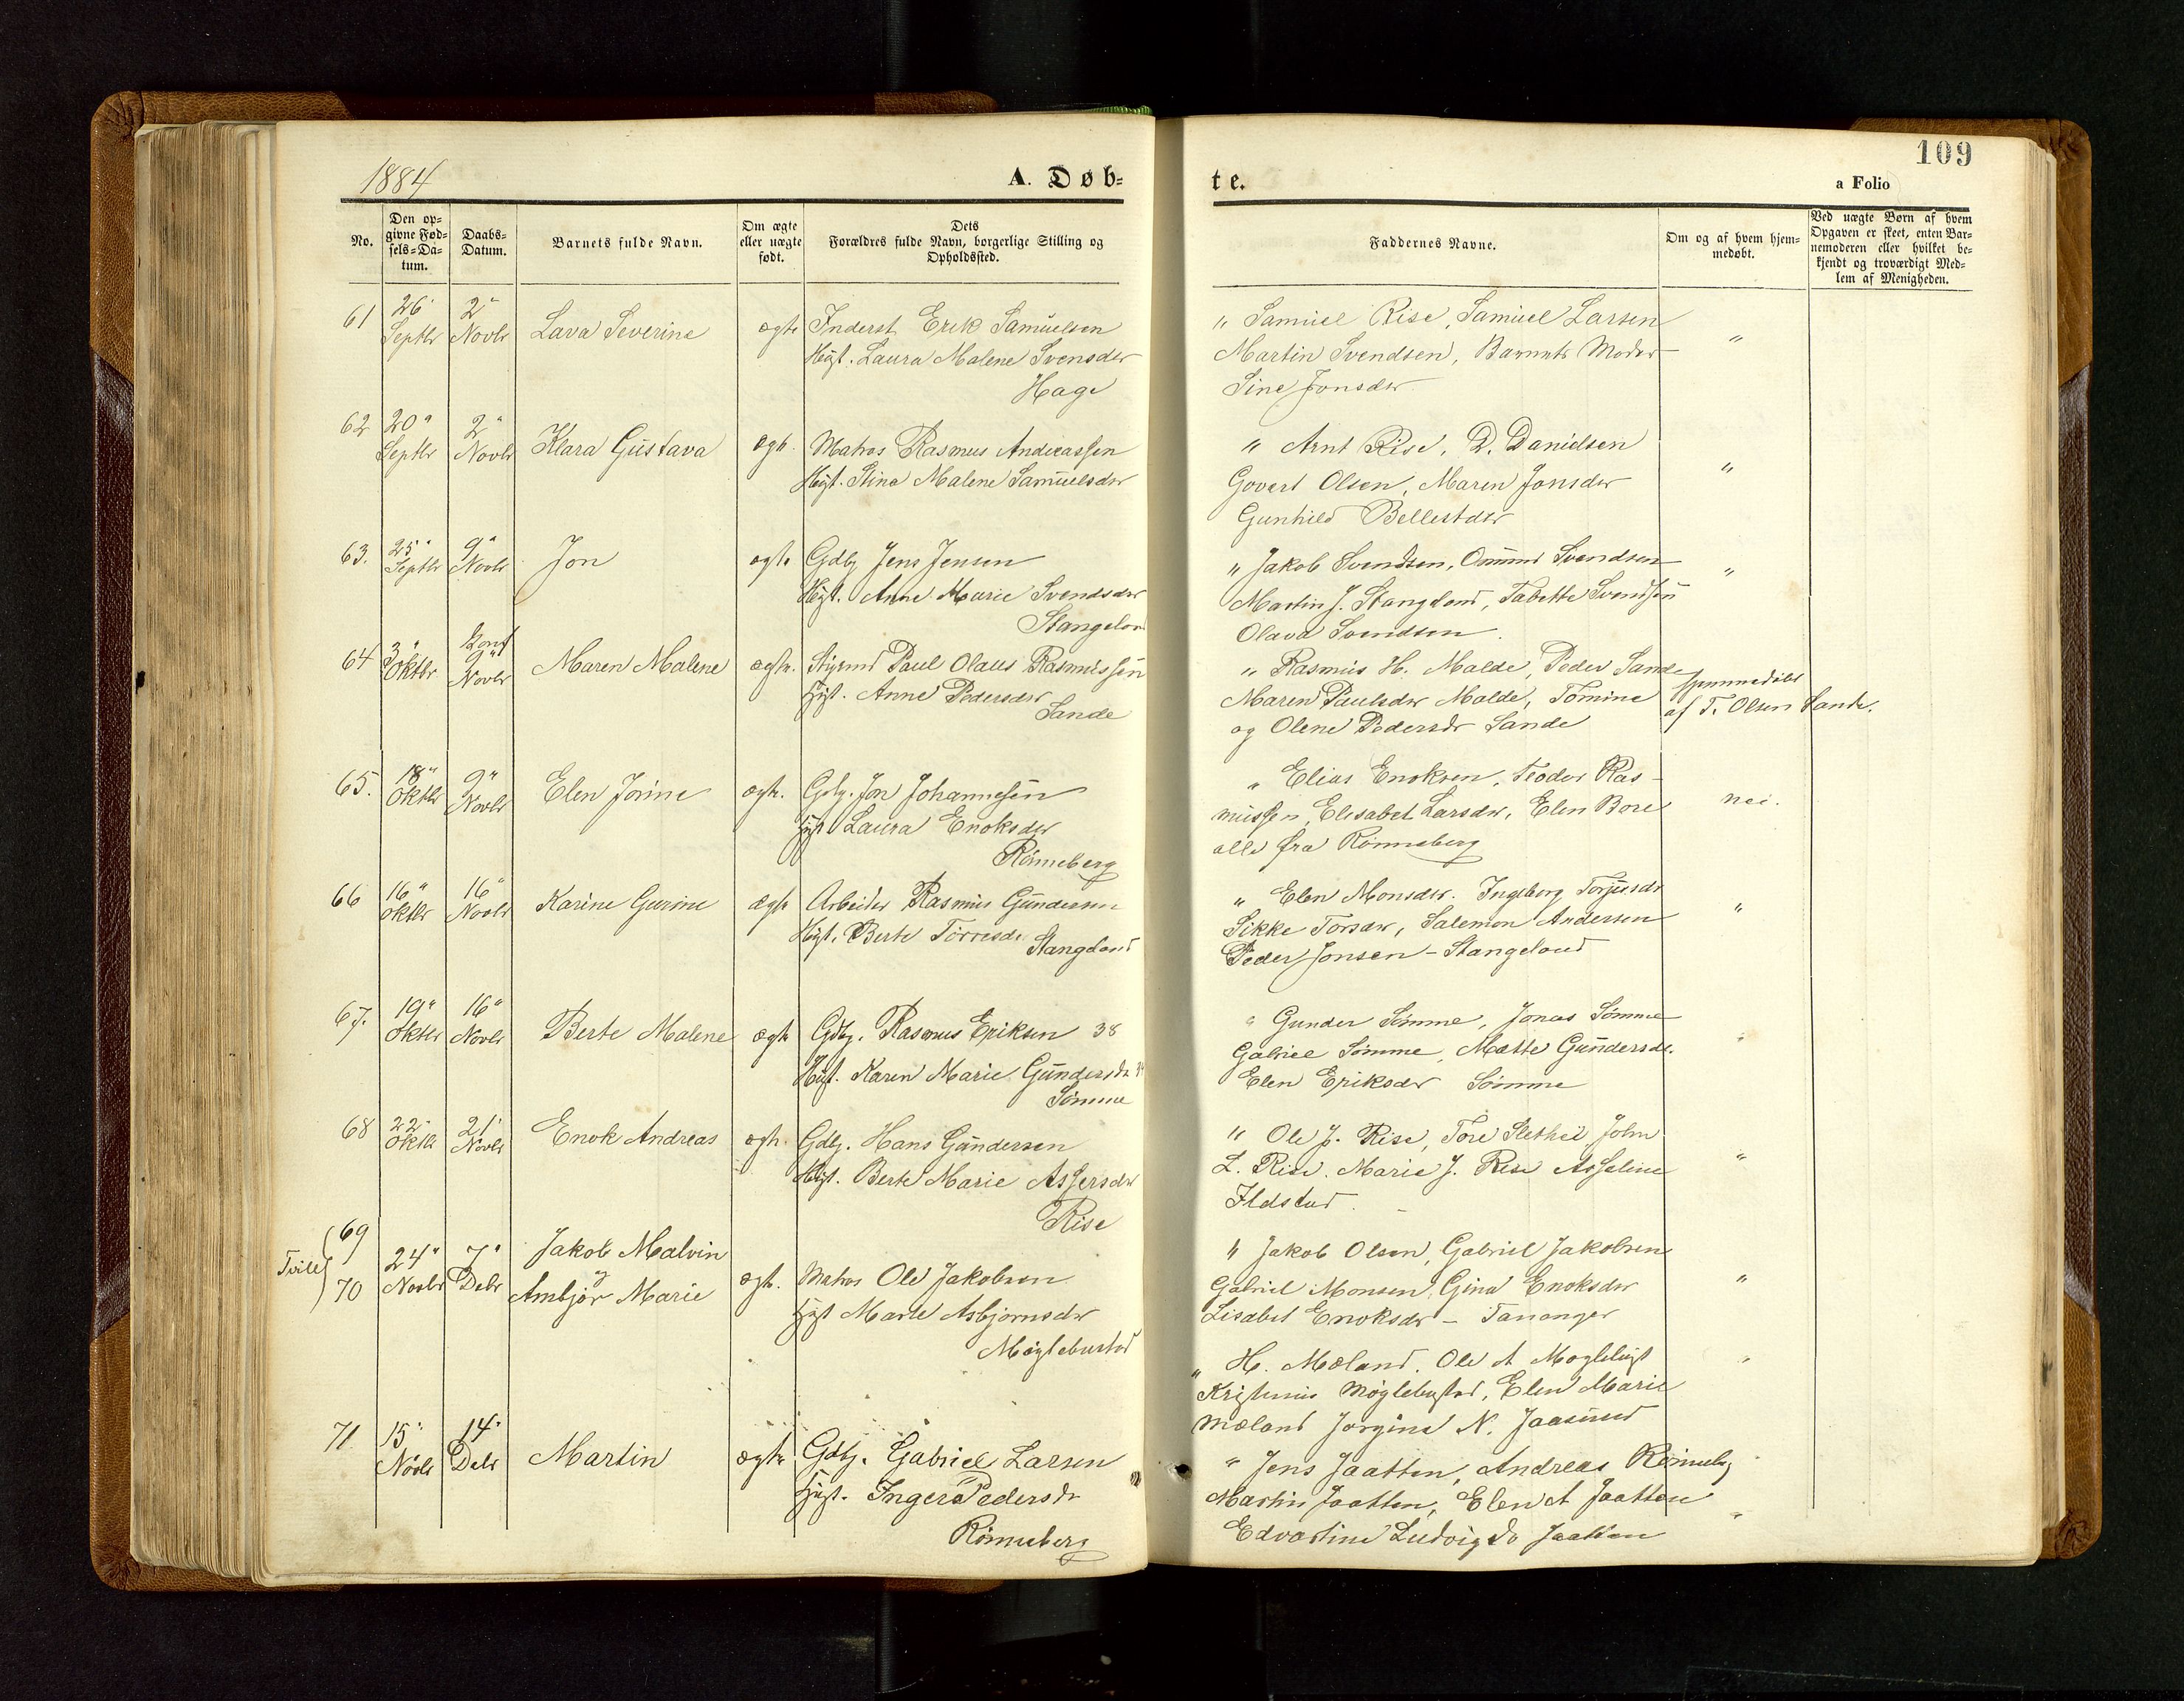 1884
A. Døb-
te.
109
a Folio
No.
Den op-
givne Fød-
sels-Da-
tum.
Daabs-
Datum.
Barnets fulde Navn.
Om ægte
eller uægte
født.
Dets
Forældres fulde Navn, borgerlige Stilling og
Opholdssted.
Faddernes Navne.
Om og af hvem hjem-
medøbt.
Ved uægte Børn af hvem
Opgaven er skeet, enten Bar-
nemoderen eller hvilket be-
kjendt og troværdigt Med-
lem af Menigheden.
61 26 Septbr 2 Novbr Lava Severine ægte Inderst Erik Samuelsen
Hust. Laura Malene Svensdtr
Hage
" Samuel Rise, Samuel Larsen
Martin Svendsen, Barnets Moder "
Sine Jonsdtr
62 20 Septbr 2 Novbr Klara Gustava ægte Matros Rasmus Andreassen
Hust. Stina Malene Samuelsdtr
" Arnt Rise, D. Danielsen
Govert Olsen, Maren Jonsdtr "
Gunhild
63. 25 Septbr 9 Novbr Jon ægte Gdbg Jens Jensen
Hust. Anne Marie Svendsdtr
Stangeland
" Jakob Svendsen, Ommund Svendsen "
Martin J. Stangeland, Tabette Svendsen
Olava Svendsen.
64 3 Oktbr 9 Novbr Maren Malene ægte. Styrmd Paul Olaus Rasmussen
Hust. Anne Pedersdtr
Sande
" Rasmus H. Malde, Peder Sande
Maren Paulsdtr Malde, Tomine
og Olene Pedersdtr Sande
af T. Olsen Sande.
65. 18 Oktbr 9 Novbr Elen Jorine ægte. Gdbg. Jon Johannesen
Hust Laura Enoksdtr
Rönneberg
" Elias Enoksen, Teodor Ras-
mussen, Elisabet Larsdtr, Elen Bore nei.
alle fra Rönneberg
66 16 Oktbr 16 Novbr Karine Gurine ægte Arbeider Rasmus Gundersen
Hust. Berte Törresdtr
Stangeland
" Elen Monsdtr. Ingeborg Torjusdtr
Sikke Torsdtr, Salemon Andersen "
Peder Jonsen - Stangeland
67. 19 Oktbr 16 Novbr Berte Malene ægte Gdbg. Rasmus Eriksen 38
Hust. Karen Marie Gundersdtr
Sömme
" Gunder Sömme, Jonas Sömme
Gabriel Sömme, Mette Gundersdtr. "
Elen Eriksdtr Sömme
68 22 Oktbr 21 Novbr Enok Andreas ægte. Gdbg. Hans Gundersen
Hust. Berte Marie Assersdtr
Rise
" Ole J. Rise, Tore John
L. Rise, Marie J. Rise Asseline "
Ildstad.
69 Jakob Malvin
Tvill 24 Novbr 7 Debr og
70 Ambjør Marie ægte. Matros Ole Jakobsen
Hust Marte Asbjørnsdtr
Möglebustad
" Jakob Olsen, Gabriel Jakobsen
Gabriel Monsen, Gina Enoksdtr "
Lisabet Enoksdtr - Tananger
" H. Mæland. Ole A "
Möglebustad, Elen Marie
Mæland Jorgina N. Jaasund
71 15 Novbr 14 Debr Martin ægte Gdbg. Gabriel Larsen
Hust. Inger Pedersdtr
Rönneberg
" Jens Jaatten, Andreas Rönneberg
Martin Jaatten, Elen A Jaatten
Edvartine Ludvigsdtr Jaatten "